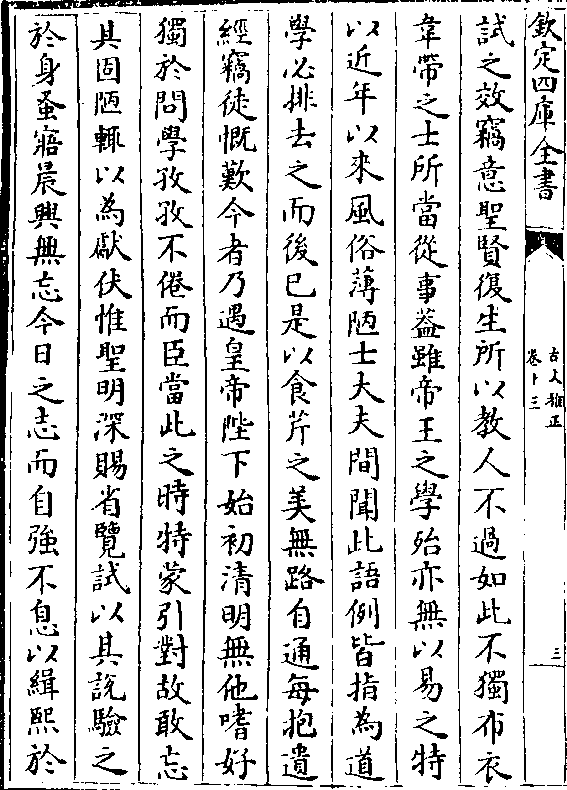 欽定四庫全書
古文雅正
卷十三
三
試之效竊意聖賢復生所以教人不過如此不獨布衣
韋帶之士所當從事葢雖帝王之學殆亦無以易之特
以近年以來風俗薄陋士大夫間聞此語例皆指為道
學必排去之而後已是以食芹之美無路自通每抱遺
經竊徒慨歎今者乃遇皇帝陛下始初清明無他嗜好
獨於問學孜孜不倦而臣當此之時特蒙引對故敢忘
其固陋輙以為獻伏惟聖明深賜省覽試以其說驗之
於身蚤寤晨興無忘今日之志而自強不息以緝熙於